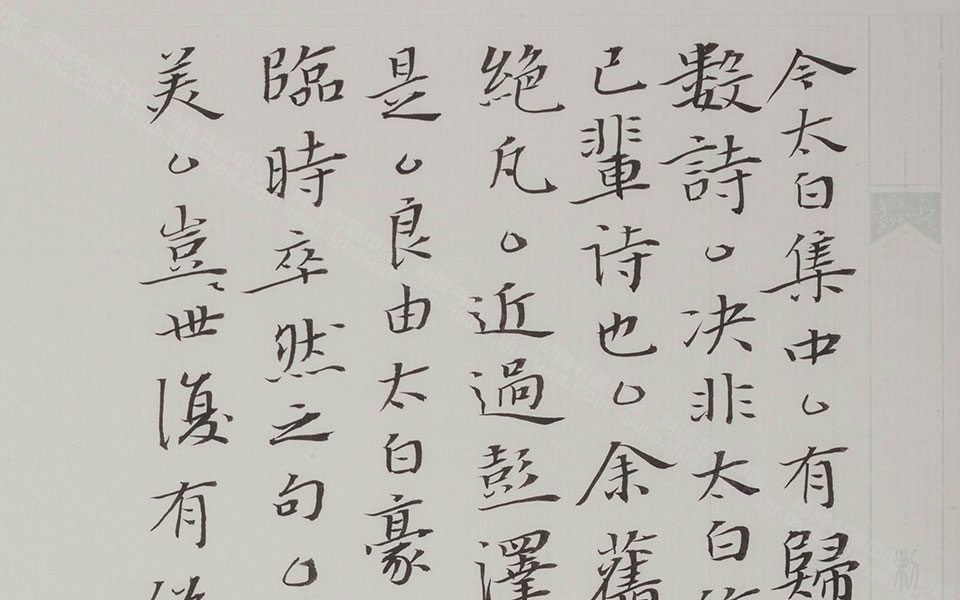 今太白集中。有歸
數詩。决非太白
已輩诗也。余舊
絕凡。近過彭澤
是。良由太白豪
臨時卒然之句。
美。豈世復有